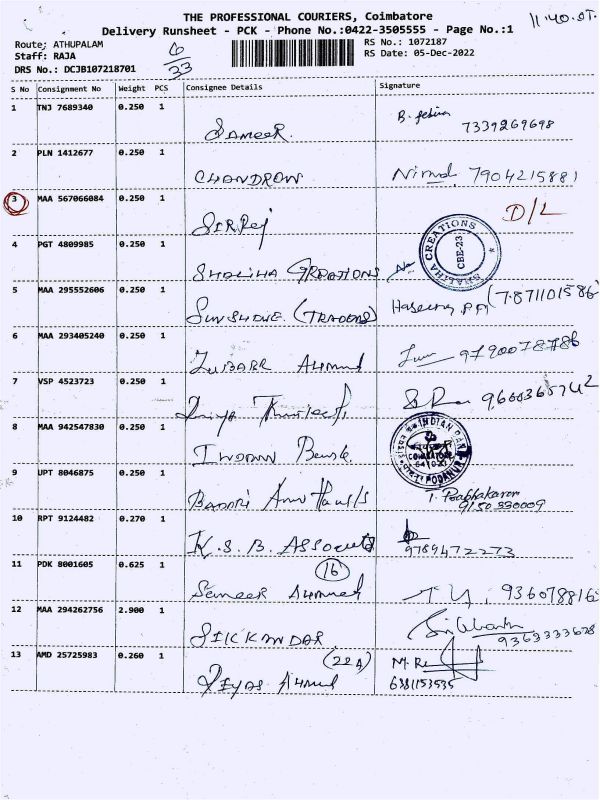 THE PROFESSIONAL COURIERS, Coimbatore
11.40.
Delivery Runsheet - PCK - Phone No.:0422-3505555 - Page No.:1
Route: ATHUPALAM
6/33
RS No.: 1072187
Staff: RAJA
RS Date: 05-Dec-2022
DRS No.: DCJB107218701
S No Consignment No Weight PCS Consignee Details Signature
1 TNJ 7689340 0.250 1
SAMEER. 7339269698
2 PLN 1412677 0.250 1
CHANDRAN Nirmal 7904215881
3 MAA 567066084 0.250 1
D/L
4 PGT 4809985 0.250 1
SHALIHA CREATIONS
SHALIHA CREATIONS
CBE-23
5 MAA 295552606 0.250 1
SUNSHINE (TRADERS) (7871101586
6 MAA 293405240 0.250 1
ZUBAER AHMED
7 VSP 4523723 0.250 1
8 MAA 942547830 0.250 1
INDIAN Bank
INDIAN BANK
PODANUR
9 UPT 8046875 0.250 1
T. Prabhakaran
9150330009
10 RPT 9124482 0.270 1
K.S.B. ASSociates 9789472273
11 PDK 8001605 0.625 1
16
Sameer Ahmed 936078816
12 MAA 294262756 2.900 1
SICKANDAR 9363333678
13 AMD 25725983 0.260 1
(22A)
6381153535